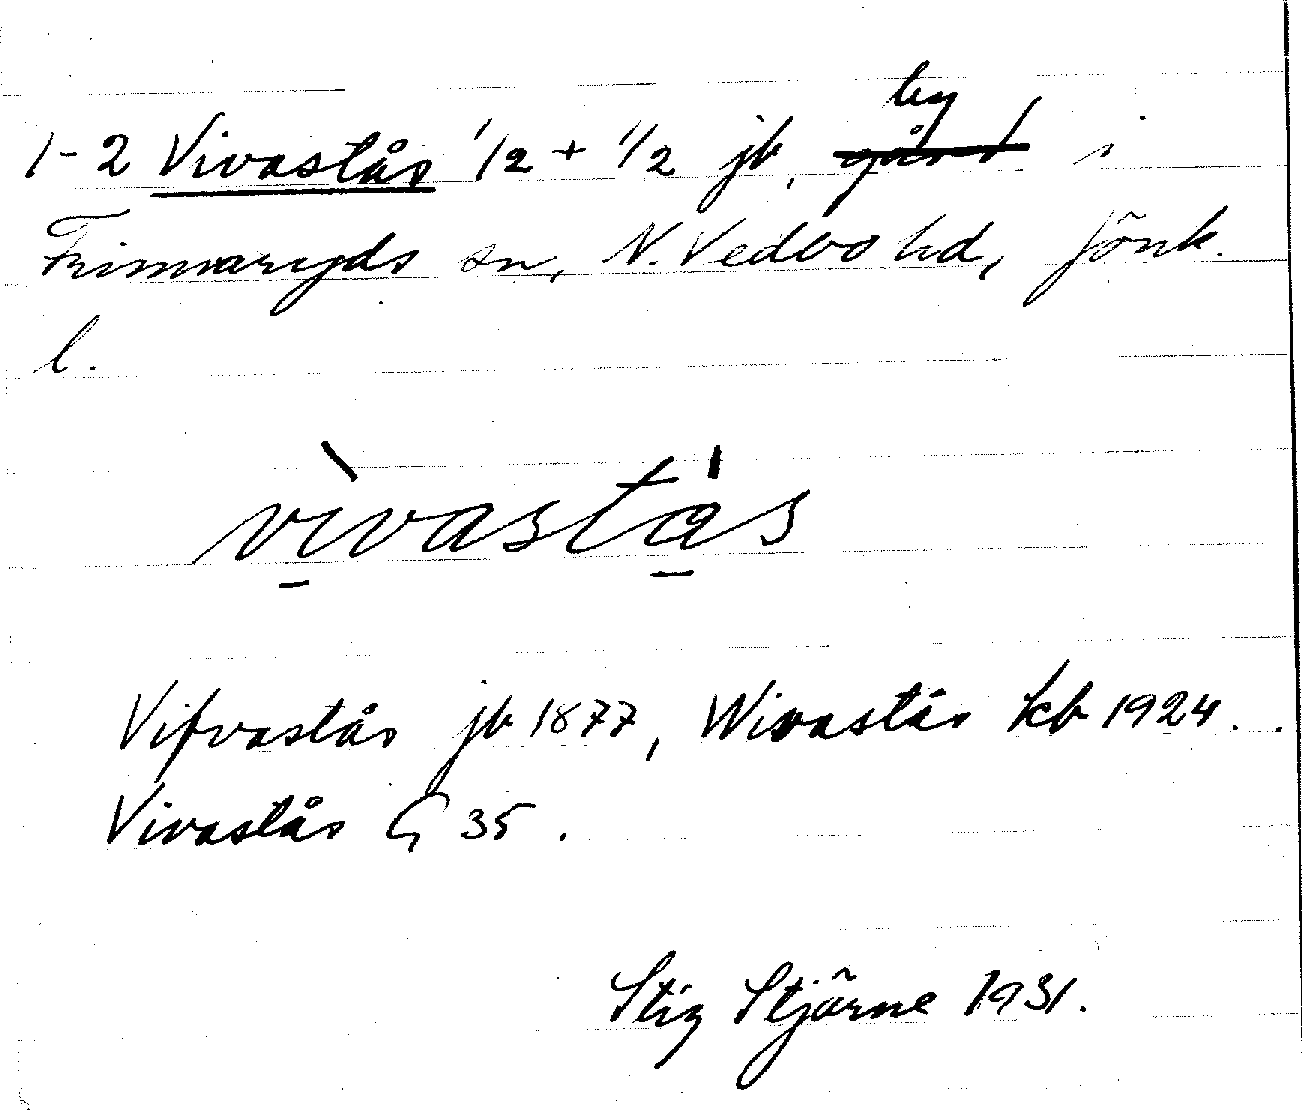 by
1-2 Vivastås 1/2 + 1/2 jb, gård i
Frinnaryds sn, N. Vedbo hd, Jönk.
l.
vìvastás
Vifvastås jb 1877, Wivastås kb 1924.
Vivastås G 35.
Stig Stjärne 1931.